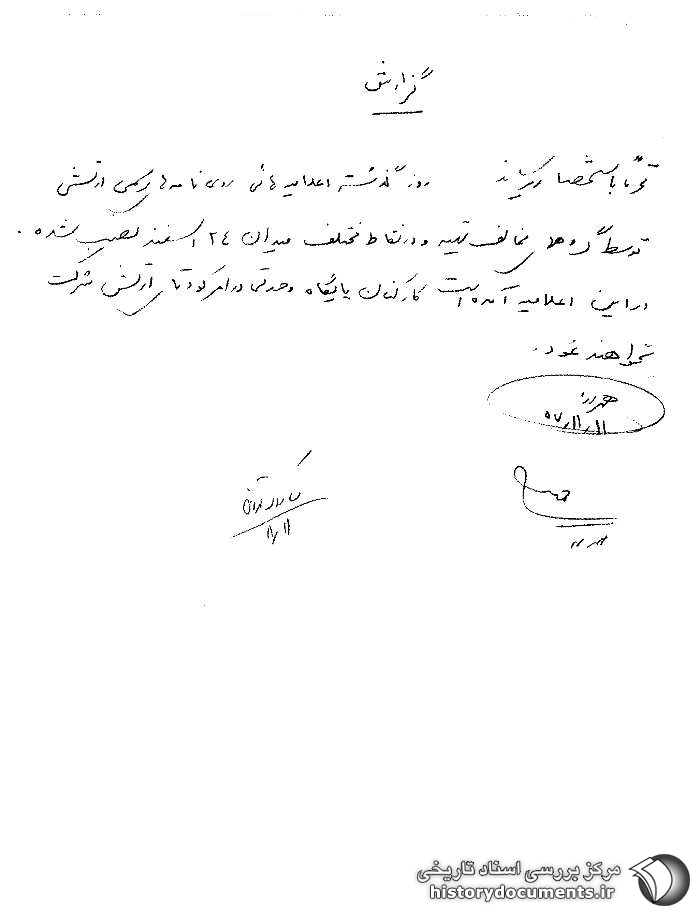 گزارش
محترماً باستحضار میرساند روز گذشته اعلامیه هائی روی نامه های رسمی ارتش
توسط گروههای مخالف تهیه و در نقاط مختلف میدان ۲۴ اسفند نصب شده.
در این اعلامیه آمده است کارکنان پایگاه وحدتی در امر کودتای ارتش شرکت
نخواهند نمود.
۵۷/۱۱/۱۱
۱۱/۱۱
مرکز بررسی اسناد تاریخی
historydocuments.ir